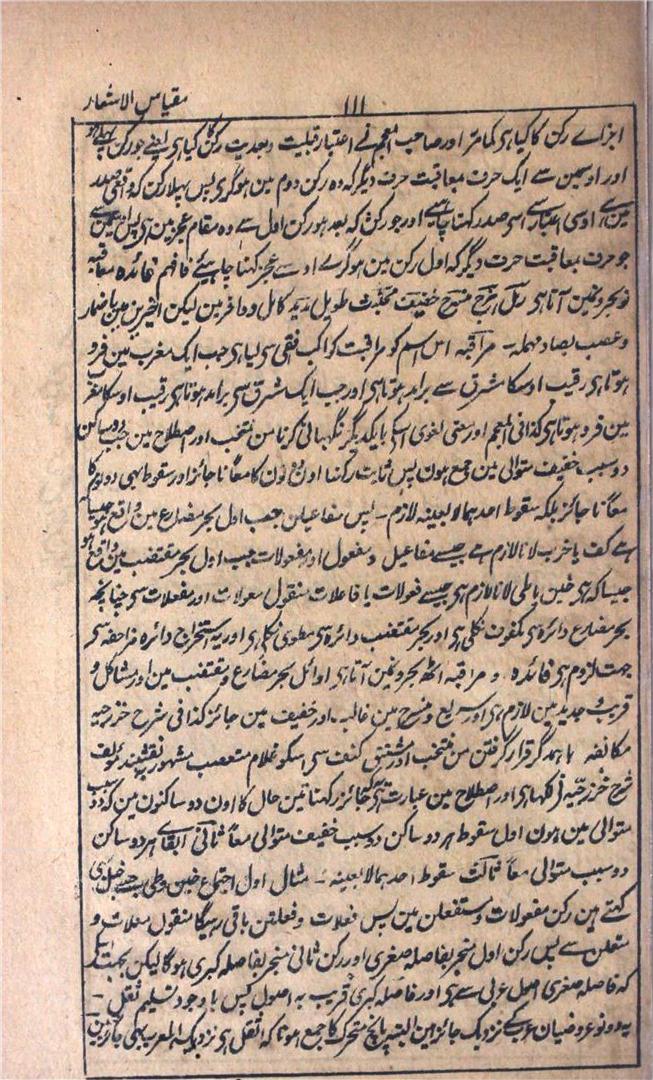 مقیاس الاشعار
۱۱۱
ابزاے رکن کا کیا ہی کما مر اور صاحب المعجم نے اعتبار قبلیت و بعدیت رکن کا کیا ہی یعنے جو رکن پہلے ہو
اور اوسمین سے ایک حرف معاقبت حرف دیگر کہ وہ رکن دوم مین ہو گری پس پہلا رکن کہ واقعی صدر
مین ہے اوسی اعتبار سے اسی صدر کہنا چاہیے اور جو رکن کہ بعد ہو رکن اول سے وہ مقام عجز مین ہی پس اسمین سے
جو حرف بمعاقبت حرف دیگر کہ اول رکن مین ہو گرے اوسے عجز کہنا چاہیے فافہم فائدہ معاقبہ
نو بحرونمین آتا ہی رمل ہزج منسرح خفیف مجتث طویل مدید کامل و وافر مین لیکن اخیرین مین باضمار
و عصب بصاد مہملہ۔ مراقبہ اس اسم کو مراقبت کواکب فقی سی لیا ہی جب ایک مغرب مین فرو
ہوتا ہی رقیب اوسکا مشرق سے برامد ہوتا ہی اور جب ایک مشرق سی برامد ہوتا ہی رقیب اوسکا مغرب
مین فرو ہوتا ہی کذا فی المعجم اور معنی لغوی اسکے بایکدیگر نگہبانی کرنا من منتخب اور اصطلاح مین جب دو ساکن
دو سبب خفیف متوالی مین جمع ہون پس ثابت رکہنا اون دونون کا معاً ناجائز اور سقوط بہی دونون کا
معاً ناجائز بلکہ سقوط احدہما لا بعینہ لازم۔ پس مفاعیلن جب اول بحر مضارع مین واقع ہو جیسا کہ
ہے کف یا خرب لانا لازم ہے جیسے مفاعیل و مفعول اور مفعولات جب اول بحر مقتضب مین واقع ہو
جیسا کہ ہی خبن یا طی لانا لازم ہی جیسے فعولات یا فاعلات منقول معولات اور مفعلات سی چنانچہ
بحر مضارع دائرہ سی مکفوف نکلی ہی اور بحر مقتضب دائرہ سی مطوی نکلی ہی اور یہ استخراج دائرہ مزاحفہ سی
جہت لزوم ہی فائدہ۔ و مراقبہ اٹھ بحرونمین آتا ہی اوائل بحر مضارع و مقتضب مین اور مشاکل و
قریب و جدید مین لازم ہی اور سریع و منسرح مین غالب۔ اور خفیف مین جائز کذا فی شرح خزرجیہ
مکانفہ باہمدگر قرار گرفتن من منتخب اور مشتق کنف سی اسکو غلام متعصب مشہور نقشبند مؤلف
شرح خزرجیہ نے لکہا ہی اور اصطلاح مین عبارت ہی جائز رکہنا تین حال کا اون دو ساکنون مین کہ دو سبب
متوالی مین ہون اول سقوط ہر دو ساکن دو سبب خفیف متوالی معاً ثانی ابقاے ہر دو ساکن
دو سبب متوالی معاً ثالث سقوط احدہما لا بعینہ۔ مثال اول اجتماع خبن و طی جسے خبل بہی
کہتے ہین رکن مفعولات و مستفعلن مین پس فعلات و فعلتن باقی رہیگا منقول معلات و
متعلن سے پس رکن اول منجر بفاصلہ صغری اور رکن ثانی منجر بفاصلہ کبری ہوگا لیکن بجہت اسکے
کہ فاصلہ صغری اصول عربی سے ہی اور فاصلہ کبری قریب بہ اصول پس باوجود تسلیم ثقل۔
یہ دونو عروضیان عرب کے نزدیک جائز ہین البتہ پانچ متحرک کا جمع ہونا کہ اثقل ہی نزدیک العرب بہی جائز نہین